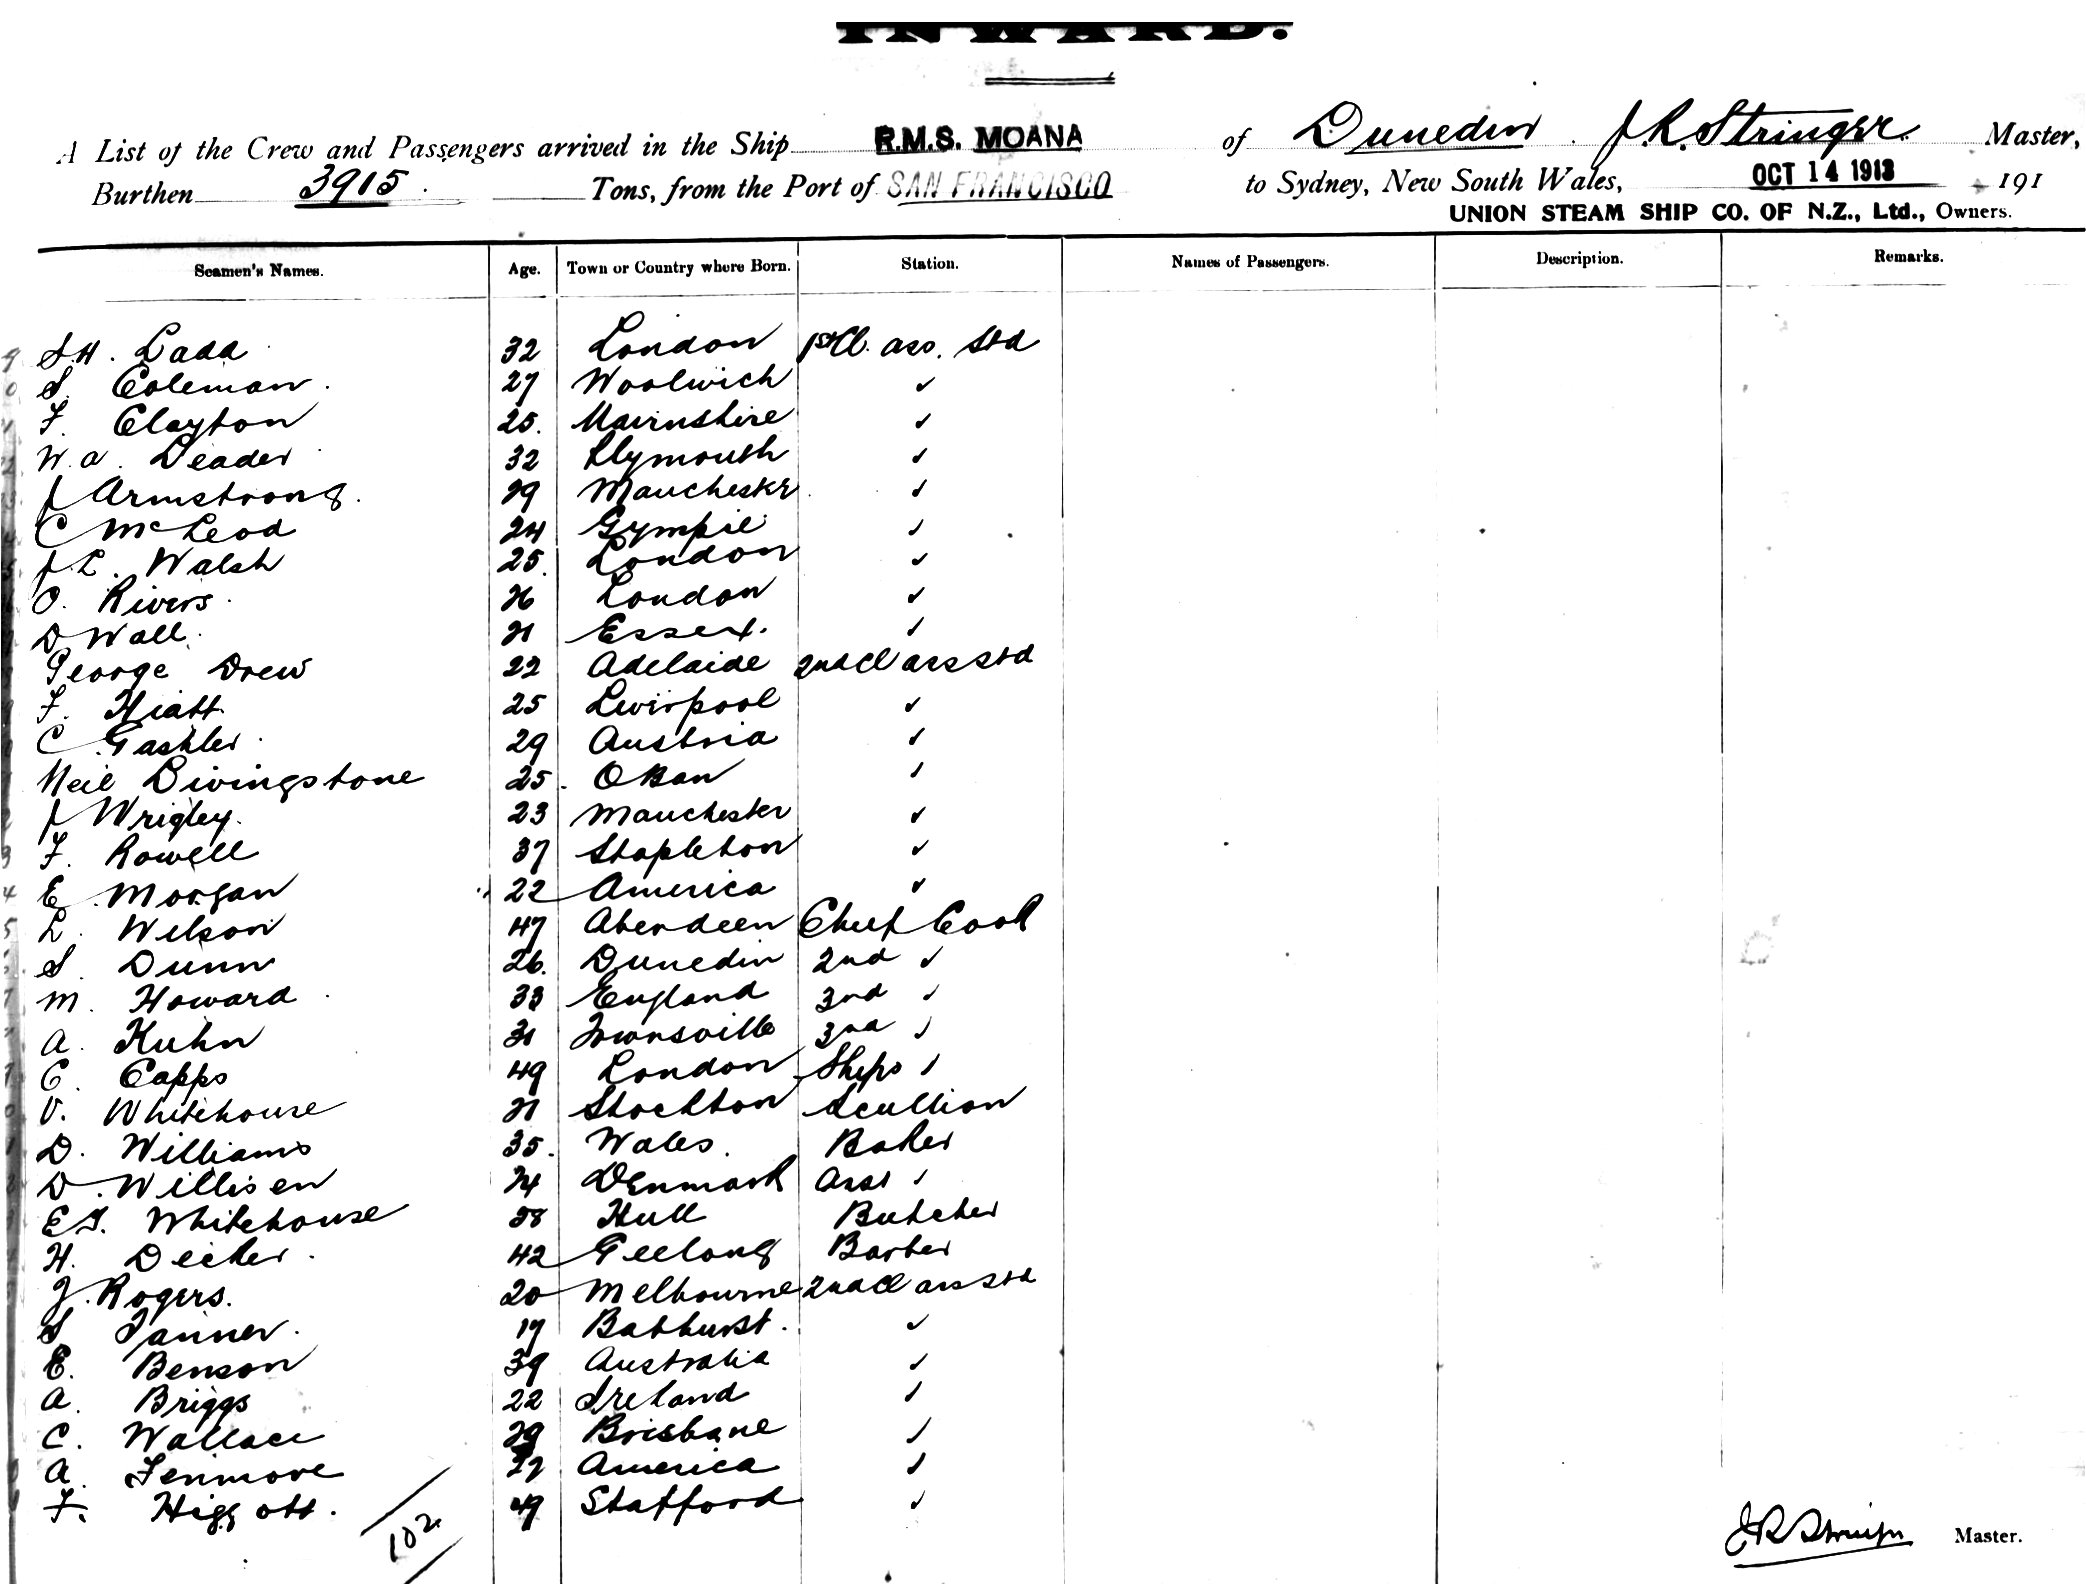 INWARD.
A List of the Crew and Passengers arrived in the Ship R.M.S. MOANA of Dunedin J.R. Stringer Master,
Burthen 3915 Tons, from the Port of SAN FRANCISCO to Sydney, New South Wales, OCT 14 1913 191
UNION STEAM SHIP CO. OF N.Z., Ltd., Owners.
Seamen's Names. Age. Town or Country where Born. Station. Names of Passengers. Description. Remarks.
S.H. Ladd 32 London 1st Cl. ass. Std
S. Coleman 27 Woolwich ✓
F. Clayton 25. Nairnshire ✓
W.A. Leader 32 Plymouth ✓
J Armstrong. 29 Manchester ✓
C McLeod 24 Gympie ✓
J.L. Walsh 25. London ✓
O. Rivers. 26 London ✓
D Wall. 21 Essex. ✓
George Drew 22 Adelaide 2nd Cl ass Std
F. Hiatt. 25 Liverpool ✓
C Gashler 29 Austria ✓
Neil Livingstone 25. Oban ✓
J Wrigley. 23 Manchester ✓
F. Rowell 37 Stapleton ✓
E Morgan 22 America ✓
L. Wilson 47 Aberdeen Chief Cook
S. Dunn 26. Dunedin 2nd ✓
M. Howard 33 England 3rd ✓
A. Kuhn 31 Townsville 3rd ✓
C. Capps 49 London Ships ✓
V. Whitehouse 21 Stockton Scullion
D. Williams 35. Wales. Baker
D. Willisen 24 Denmark Asst ✓
E.J. Whitehouse 58 Hull Butcher
H. Decker. 42 Geelong Barber
J. Rogers. 20 Melbourne 2nd Cl ass Std
S Tanner. 17 Bathurst. ✓
E. Benson 39 Australia ✓
A. Briggs 22 Ireland ✓
C. Wallace 29 Brisbane ✓
A. Fenmore 27 America ✓
F. Higgott. 49 Stafford ✓
102
J R Stringer Master.